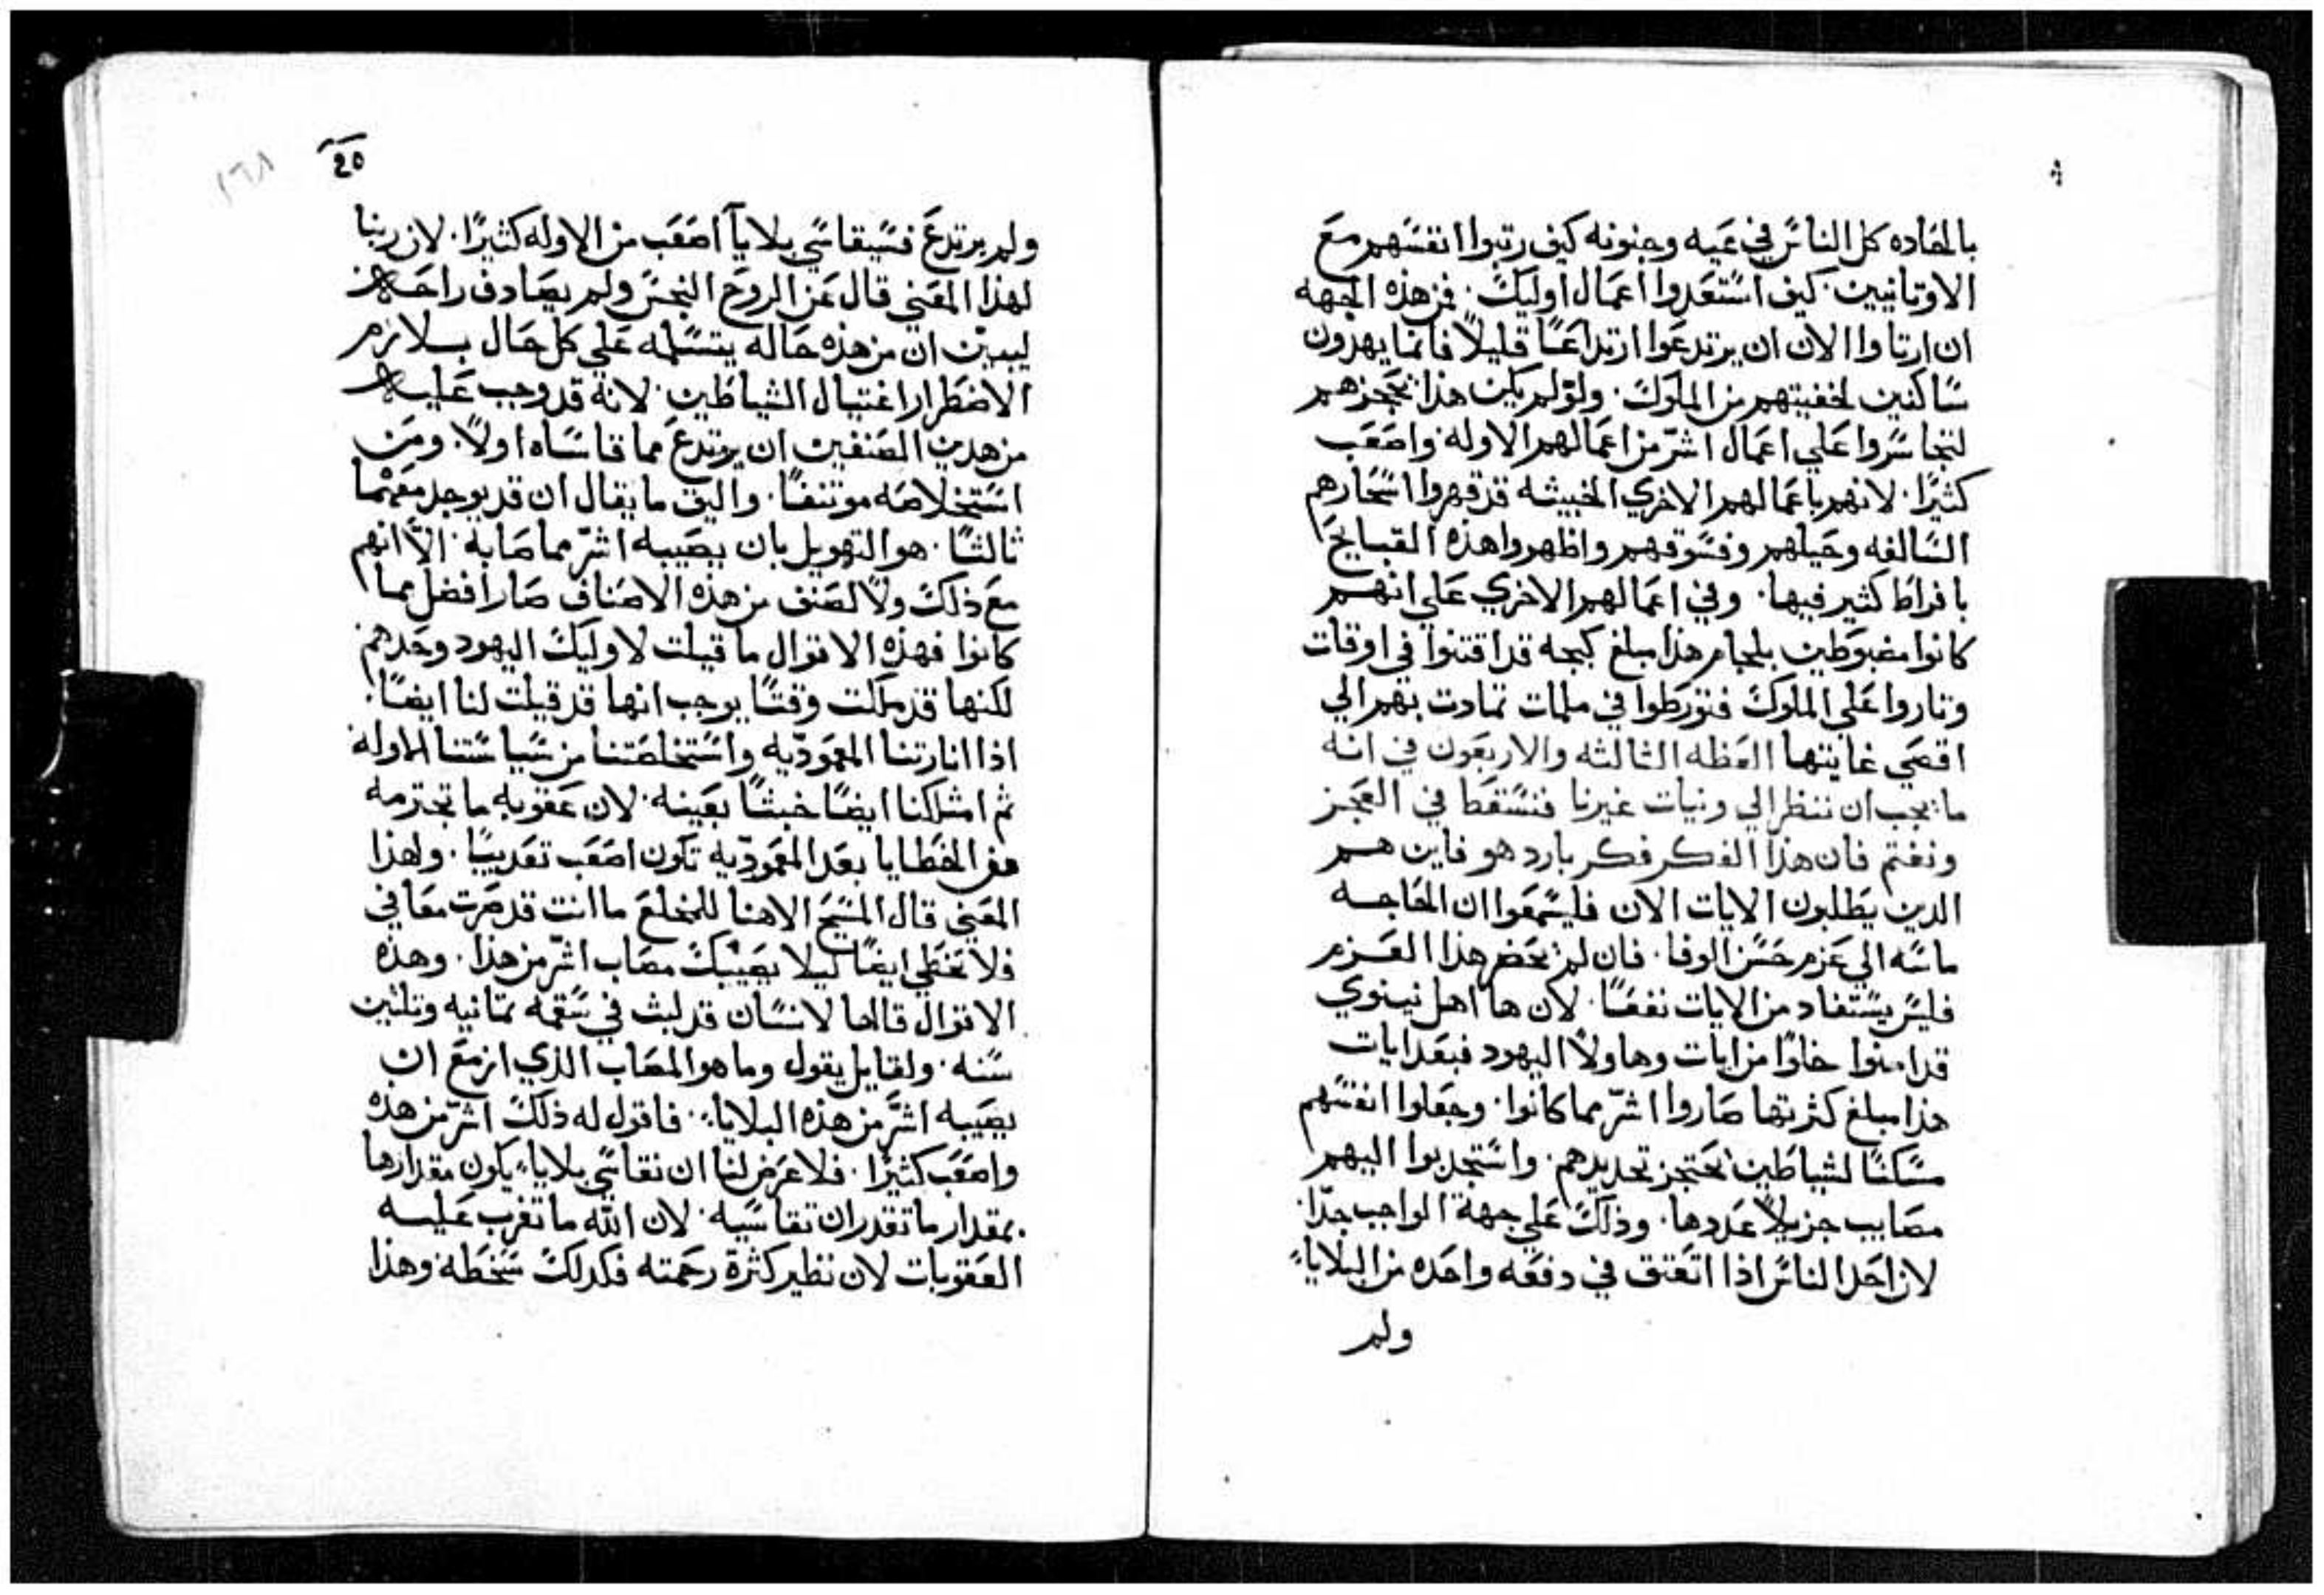 بالمضاده كل الناس في غيه وجنونه كيف رتبوا انفسهم مع
الاوتانيين. كيف استعدوا اعمال اوليك. فمن هذه الجهه
ان ارتاوا الان ان يرتدعوا ارتداعًا قليلًا فانما يهدون
ساكنين لخفيتهم من الملوك. ولو لم يكن هذا يحجزهم
لتجاسروا علي اعمال اشرّ من اعمالهم الاوله واصعب
كثيرًا. لانهم باعمالهم الاخري الخبيثه قد قهروا اسحارهم
السالفه وحيلهم وفسوقهم واظهروا هذه القبايح
بافراط كثير فيها. وفي اعمالهم الاخري علي انهم
كانوا مضبوطين بلجام هذا مبلغ كبحه قد افتنوا في اوقات
وتاروا علي الملوك فتورطوا في ملمات تمادت بهم الي
اقصي غايتها العظه الثالثه والاربعون في انه
ما يجب ان ننظر الي ونيات غيرنا فنسقط في العجز
ونغتم فان هذا الفكر فكر بارد هو فاين هم
الدين يطلبون الايات الان فليسمعوا ان الحاجه
ماسه الي عزم حسن الوفا. فان لم يحضر هذا العزم
فليس يستفاد من الايات نفعًا. لان ها اهل نينوي
قد امنوا خلوًا من ايات وهاولا اليهود فبعد ايات
هذا مبلغ كثرتها صاروا اشرّ مما كانوا. وجعلوا انفسهم
مسكنًا لشياطين يحتجز تحديدهم. واستجدبوا اليهم
مصايب جزيلًا عددها. وذلك علي جهة الواجب جدًا.
لان احد الناس اذا اتعتق في دفعه واحده من البلايا
ولم
20
١٦٨
ولم يرتدع فسيقاسي بلايا اصعب من الاوله كثيرًا. لان ربنا
لهذا المعني قال عن الروح النجس ولم يصادف راحه
ليبين ان من هذه حاله يتسلمه علي كل حال بلازم
الاضطرار اغتيال الشياطين. لانه قد وجب عليه
من هدين الصنفين ان يرتدع مما قاساه اولًا. ومن
استخلاصه موتنفًا. واليق ما يقال ان قد يوجد معهما
ثالثًا. هو التهويل بان يصيبه اشرّ مما صابه. الّا انهم
مع ذلك ولا لصنف من هذه الاصناف صار افضل مما
كانوا فهذه الاقوال ما قيلت لاوليك اليهود وحدهم
لكنها قد ملكت وقتًا يوجب انها قد قيلت لنا ايضًا.
اذا انارتنا المعموديّه واستخلصتنا من سياستنا الاوله
ثم امتلكنا ايضًا خبثًا بعينه. لان عقوبه ما تجترمه
من الخطايا بعد المعموديّه تكون اصعب تعديبًا. ولهذا
المعني قال المسيح الاهنا للمخلع ما انت قد صرت معافي
فلا تخطي ايضًا كيلا يصيبك مصاب اشرّ من هذا. وهذه
الاقوال قالها لانسان قد لبث في سقمه تمانيه وتلتين
سنه. ولقايل يقول وما هو المصاب الذي ازمع ان
يصيبه اشرّ من هذه البلايا. فاقول له ذلك اشرّ من هذه
واصعب كثيرًا. فلا عرض لنا ان نقاسي بلايا يكون مقدارها
بمقدار ما تقدر ان تقاسيه. لان الله ما تغرب عليه
العقوبات لان نظير كثرة رحمته فكدلك سخطه وهذا